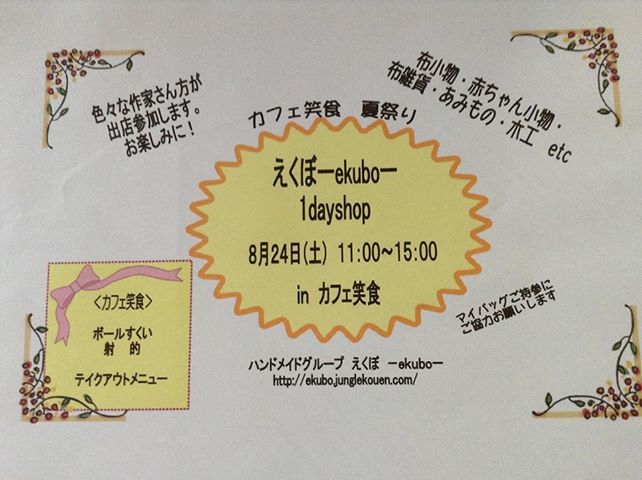 色々な作家さん方が
出店参加します。
お楽しみに！
布小物・赤ちゃん小物・
布雑貨・あみもの・木工 etc
カフェ笑食 夏祭り
えくぼーekuboー
1dayshop
8月24日(土) 11:00～15:00
in カフェ笑食
マイバッグご持参に
ご協力お願いします
＜カフェ笑食＞
ボールすくい
射 的
テイクアウトメニュー
ハンドメイドグループ えくぼ ーekuboー
http://ekubo.junglekouen.com/